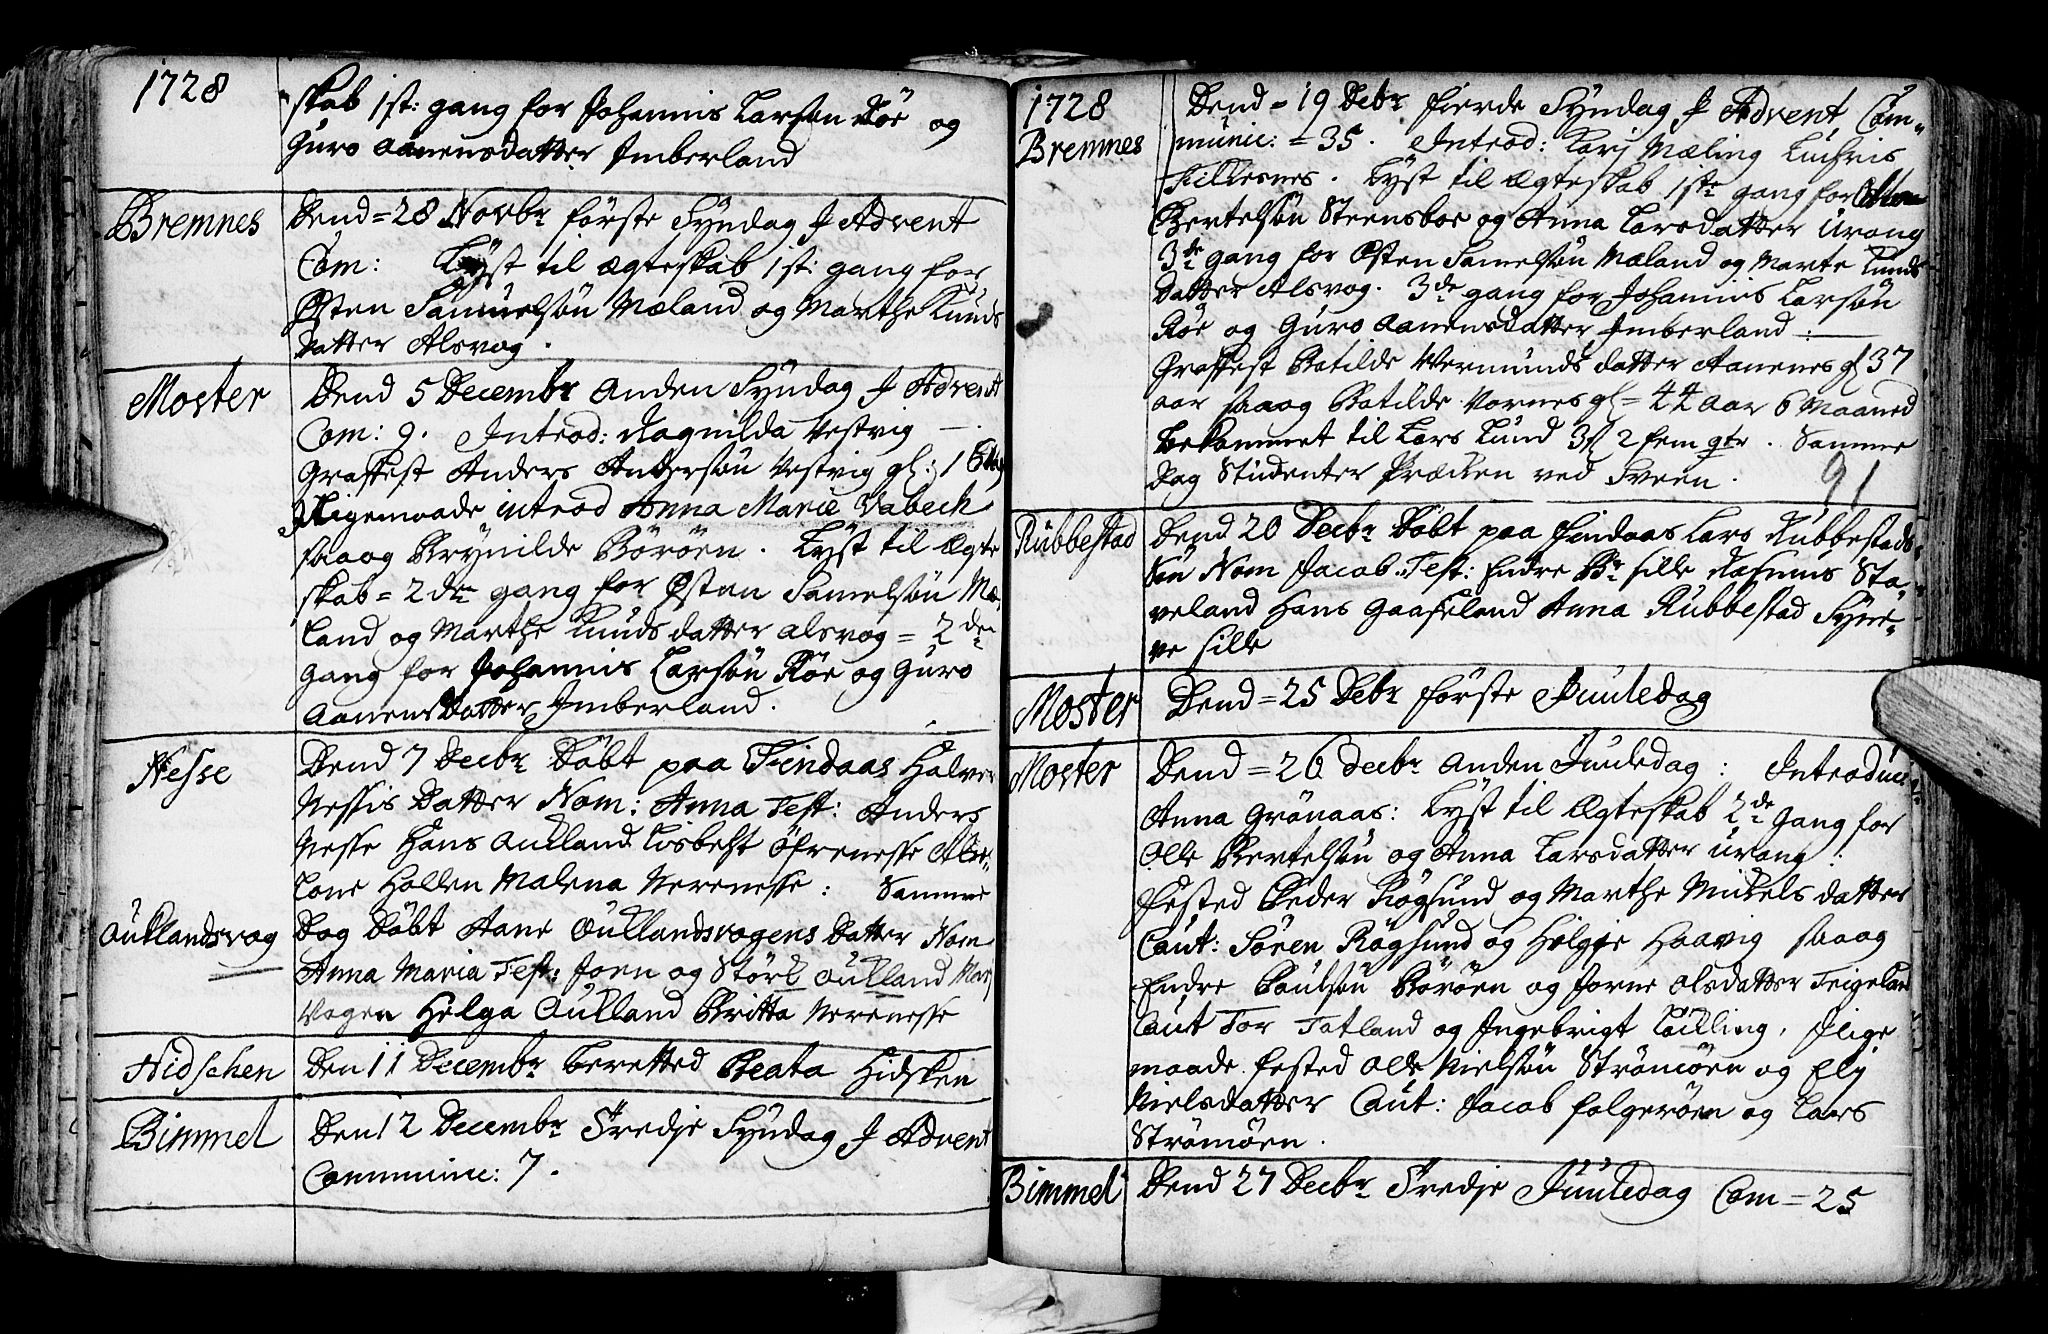 1728
skab 1st: gang for Johannis Larsøn Røe og
Guro Aanensdatter Imberland
Bremnes
Dend = 28 Novbr første Syndag I Advent
Com: Lyst til ægteskab 1st: gang for
Østen Samuelsøn Mæland og Marthe Knuds
datter Alsvog.
Moster
Dend 5 Decembr Anden Syndag I Advent
Com: 9. Introd: Ragnilda Vestvig —.
Graffest Anders Andersøn Vestvig gl: 16
Iligemaade introd Anna Marie Vabeck
saaog Brynilde Børøen. Lyst til Ægte
skab = 2den gang for Østen Samelsøn Mæ-
land og Marthe Knudsdatter Alsvog = 2den
gang for Johannis Larsøn Røe og Guro
Aanensdatter Imberland.
Nesse
Dend 7 Decbr Døbt paa Findaas Halvor
Nessis Datter Nom: Anna Test: Anders
Nesse Hans Autland Lisbeht Øfrenesse
Lone Hollen Malena Nerenesse: Samme
Autlandsvog
Dag Døbt Aane Autlandsvogens Datter Nom
Anna Maria Test: Joen og Størk Autland
Vogen Helga Autland Britta Nerenesse
Hidschen
Den 11 Decembr beretted Beata Hidsken
Bimmel
Den 12 Decembr Tredje Syndag I Advent
Communic: 7.
1728
Bremnes
Dend = 19 Debr fierde Syndag I Advent, Com-
munic: = 35. Introd: Karj Mæling
Fillesnes. Lyst til Ægteskab 1ste gang for
Bertelsøn Steensboe og Anna Larsdatter Urang
3de gang for Østen Samelsøn Mæland og Marte Knuds
datter Alsvog. 3de gang for Johannis Larsøn
Røe og Guro Aanensdatter Imberland :
Graffest Batilde Vermundsdatter Aanenes gl 37
aar saaog Batilde Vornes gl = 44 aar 6 Maaned
bekommet til Lars Lund 3 2 fem qtr. Samme
Dag Studenter Præcken ved Sveen.
91
Rubbestad
Dend 20 Decbr Døbt paa Findaas Lars Rubbestads
Søn Nom Jacob. Test: Endre Br: sille Rasmus Sta-
veland Hans Gaaseland Anna Rubbestad Syne-
ve sille
Moster
Dend = 25 Debr første Juuledag
Moster
Dend = 26 Decbr Anden Juuledag : Introduc:
Anna Grønaas: Lyst til Ægteskab 2de gang for
Olle Bertelsøn og Anna Larsdatter Urang :
Fested Peder Røgsund og Marthe Mickelsdatter
Caut: Søren Røgsund og Helgje Haavig saaog
Endre Poulsøn Børøen og Jorne Olsdatter Teigeland
Caut Tor Totland og Ingebrigt Lücling, Ilige
maade fested Olle Nielsøn Strømøen og Elj
Nielsdatter Caut: Jacob Folgerøen og Lars
Strømøen.
Bimmel
Dend 27 Decbr Tredje Juuledag Com = 25